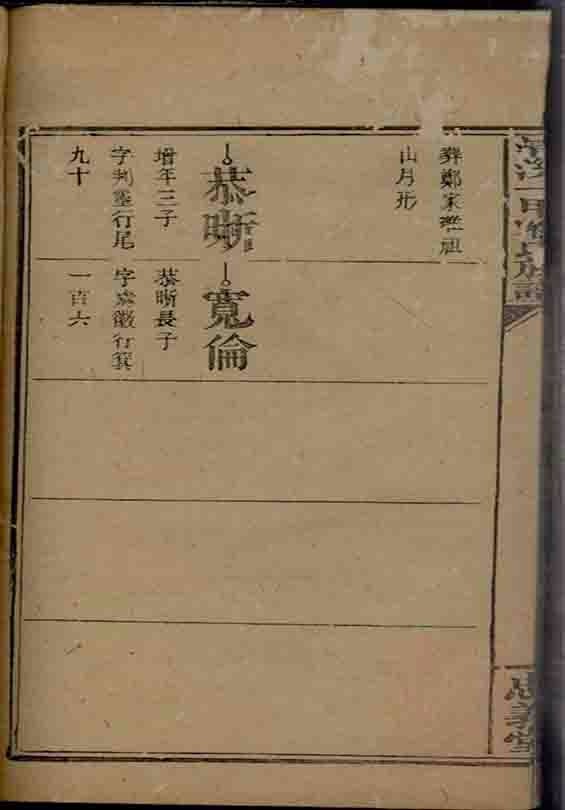 族譜
忠義堂
葬鄭家祖
山月形
恭晰
增年三子
字判行尾
九十
寬倫
恭晰長子
字徽行箕
一百六